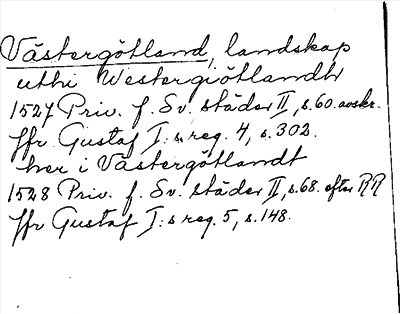 Västergötland, landskap
uthi Westergiötlandh
1527 Priv. f. Sv. städer II, s. 60. avskr.
Jfr Gustaf I:s reg. 4, s. 302.
her i Västergötlandt
1528 Priv. f. Sv. städer II, s. 68. efter RR
Jfr Gustaf I:s reg. 5, s. 148.